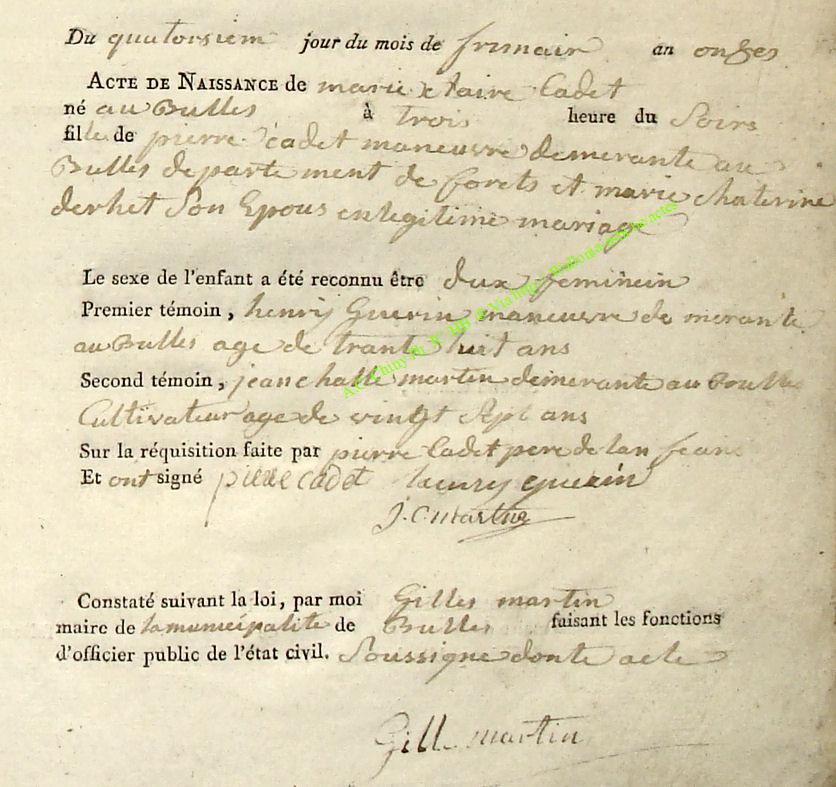 Du quatorsiem jour du mois de frimair an onges
ACTE DE NAISSANCE de marie claire Cadet
né au Bulles à trois heure du Soirs
fille de pierre cadet maneuvre demerante au
Bulles departement de forets et marie chaterine
derhet Son Epous en legitime mariage
Le sexe de l'enfant a été reconnu être dux feminein
Premier témoin, henry Guerin maneuvre de merante
au Bulles age de trante huit ans
Second témoin, jean martin demerante au Boulles
Cultivateur age de vingt Sept ans
Sur la réquisition faite par pierre Cadet pere de lan feans
Et ont signé pierre cadet henry guerin
J. C martin
Constaté suivant la loi, par moi Gilles martin
maire de la municipalite de Bulles faisant les fonctions
d'officier public de l'état civil. Soussigne donte acte
Gille martin